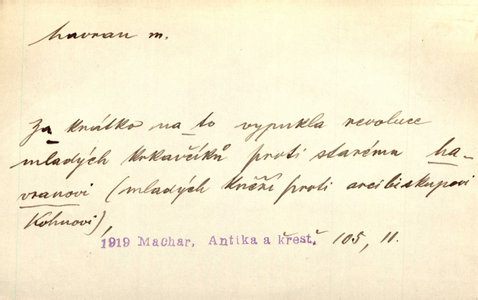 havran m.
Za krátko na to vypukla revoluce
mladých krkavčíků proti starému ha-
vranovi (mladých kněží proti arcibiskupovi
Kohnovi),
1919 Machar, Antika a křest. 105, 11.